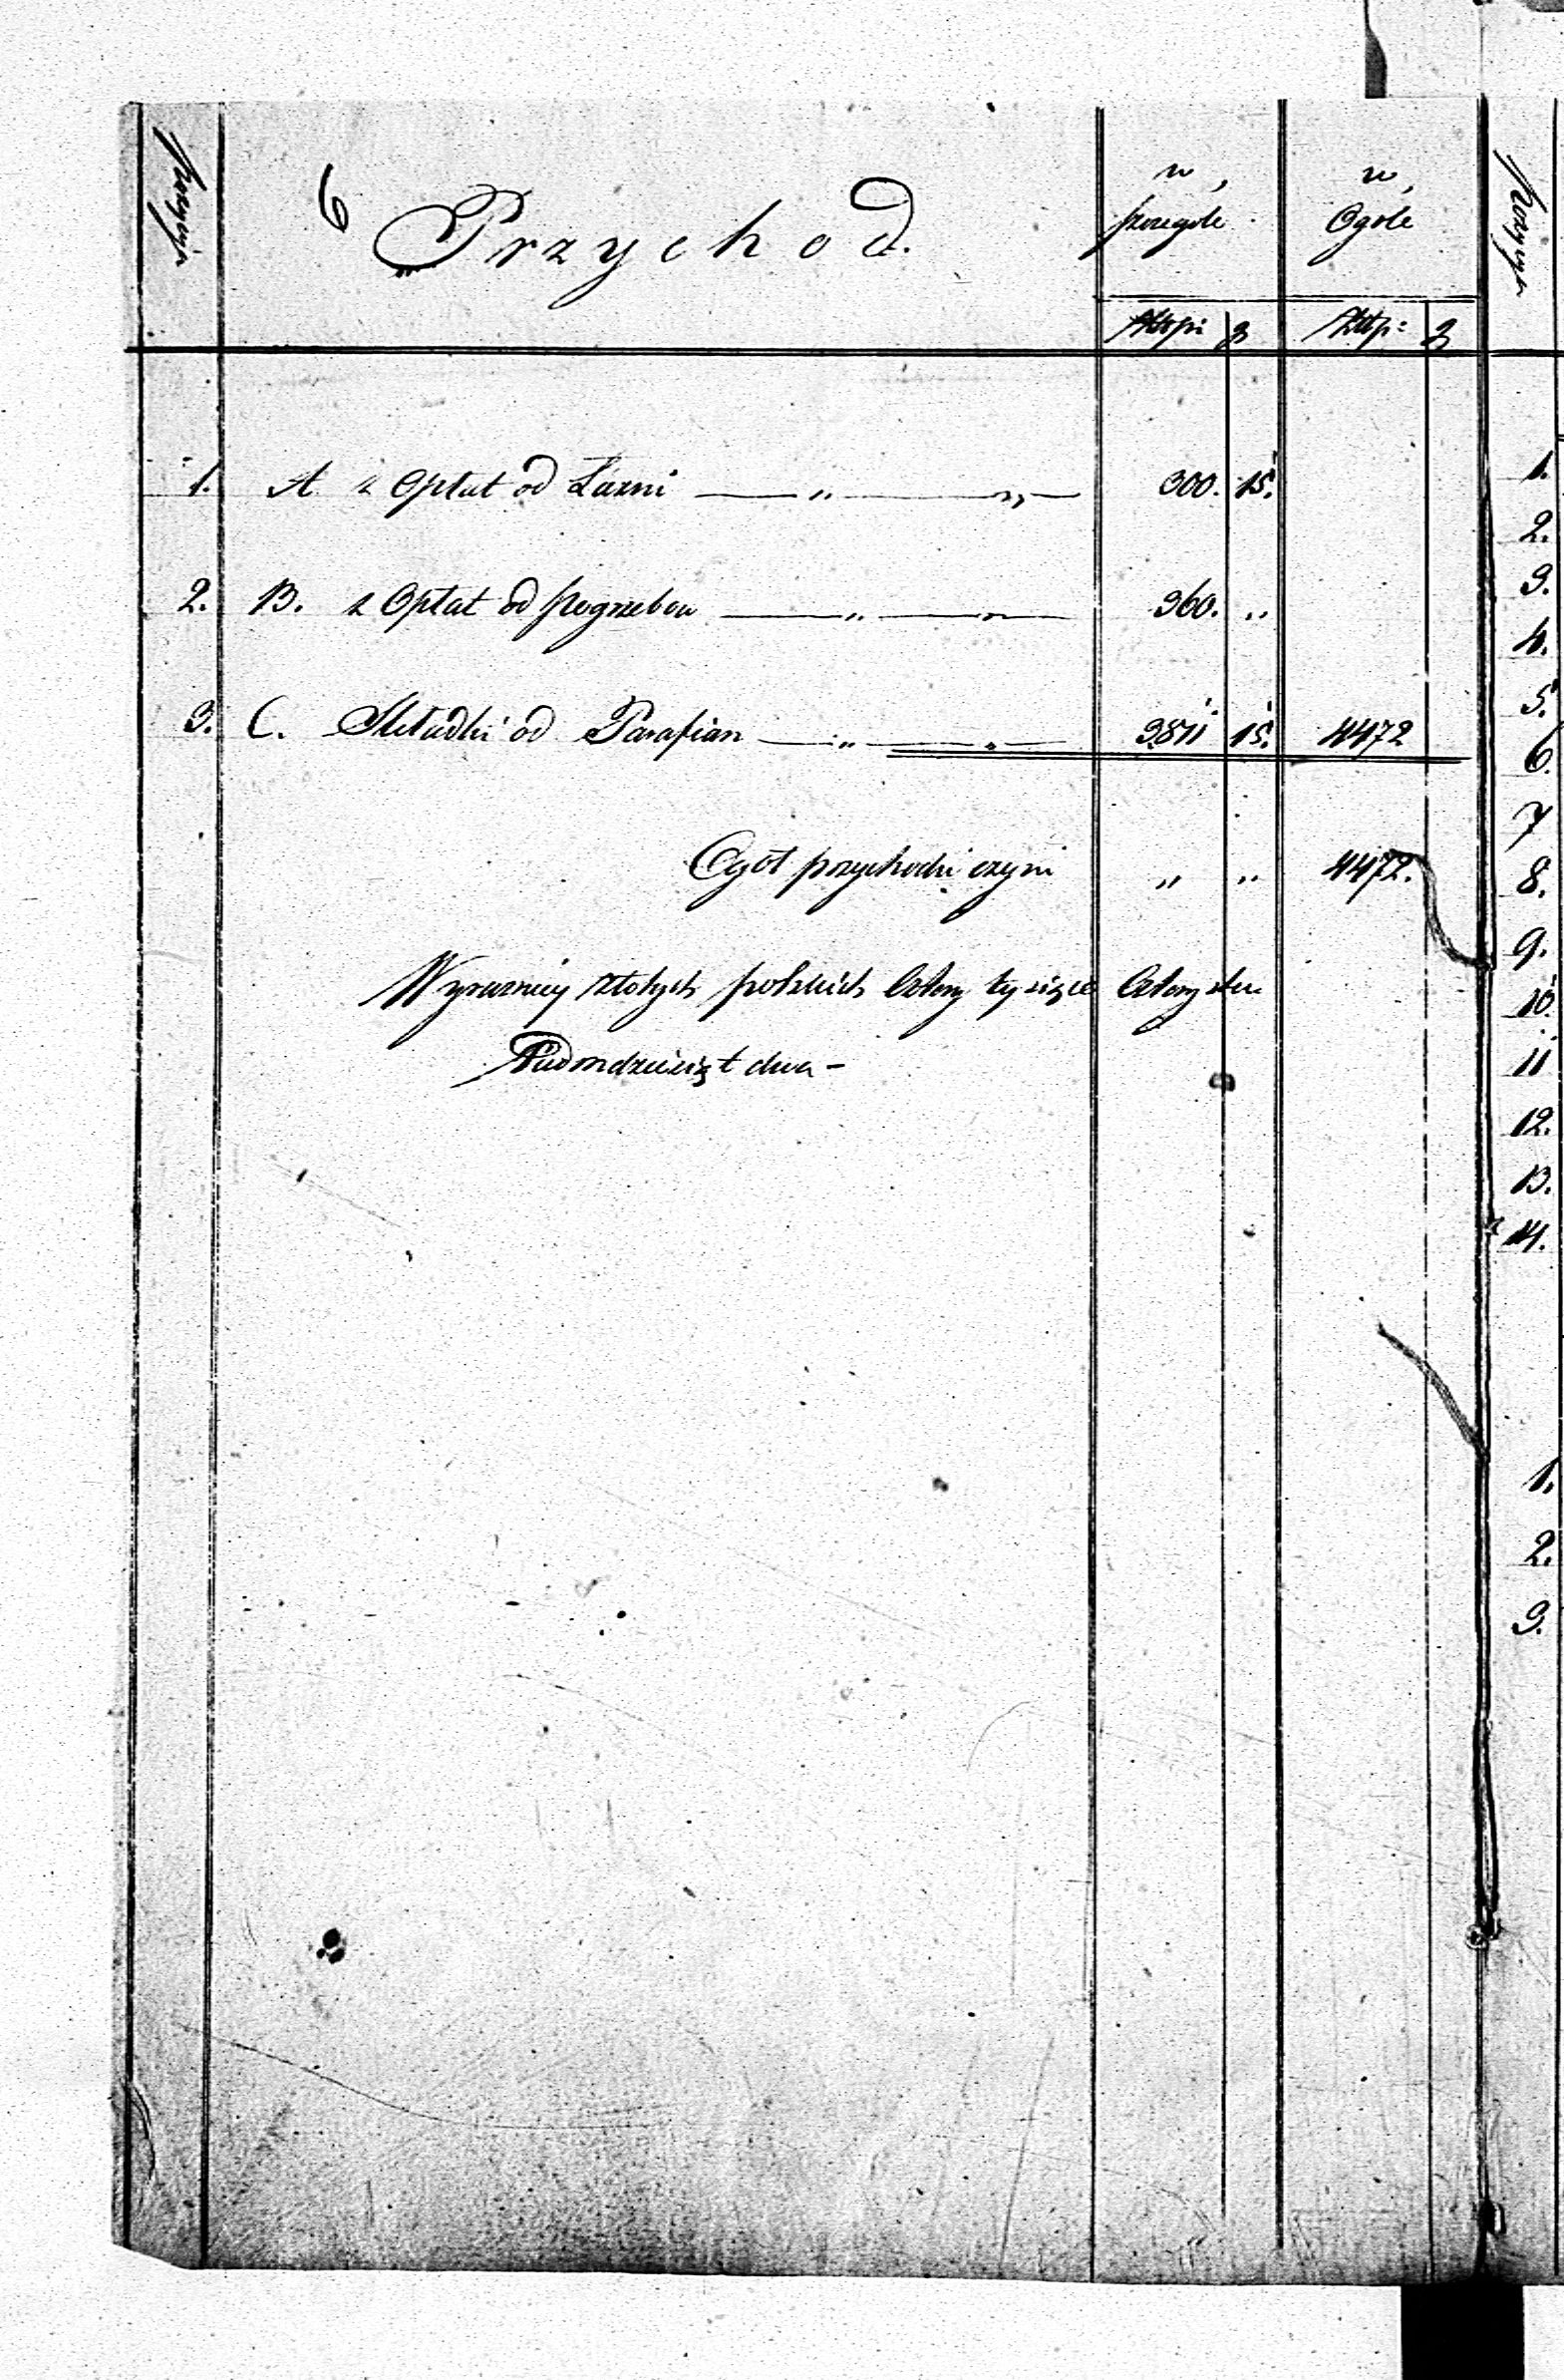 Pozycja
6
Przychod.
w szczegole
w Ogole
Złtp: g
Złtp: g
1. A z Opłat od Łazni — „ — „ — 300. 15.
2. B. z Opłat od pogrzebow — „ — „ — 360. „
3. C. Składki od Parafian — „ — „ — 3811 15. 4472
Ogół przychodu czyni „ „ 4472.
Wyrazniey złotych polskich Cztery tysiące Czterysta
Siedmdziesiąt dwa -
Pozycja
1.
2.
3.
4.
5.
6.
7
8.
9.
10
11
12.
13.
14.
1.
2.
3.